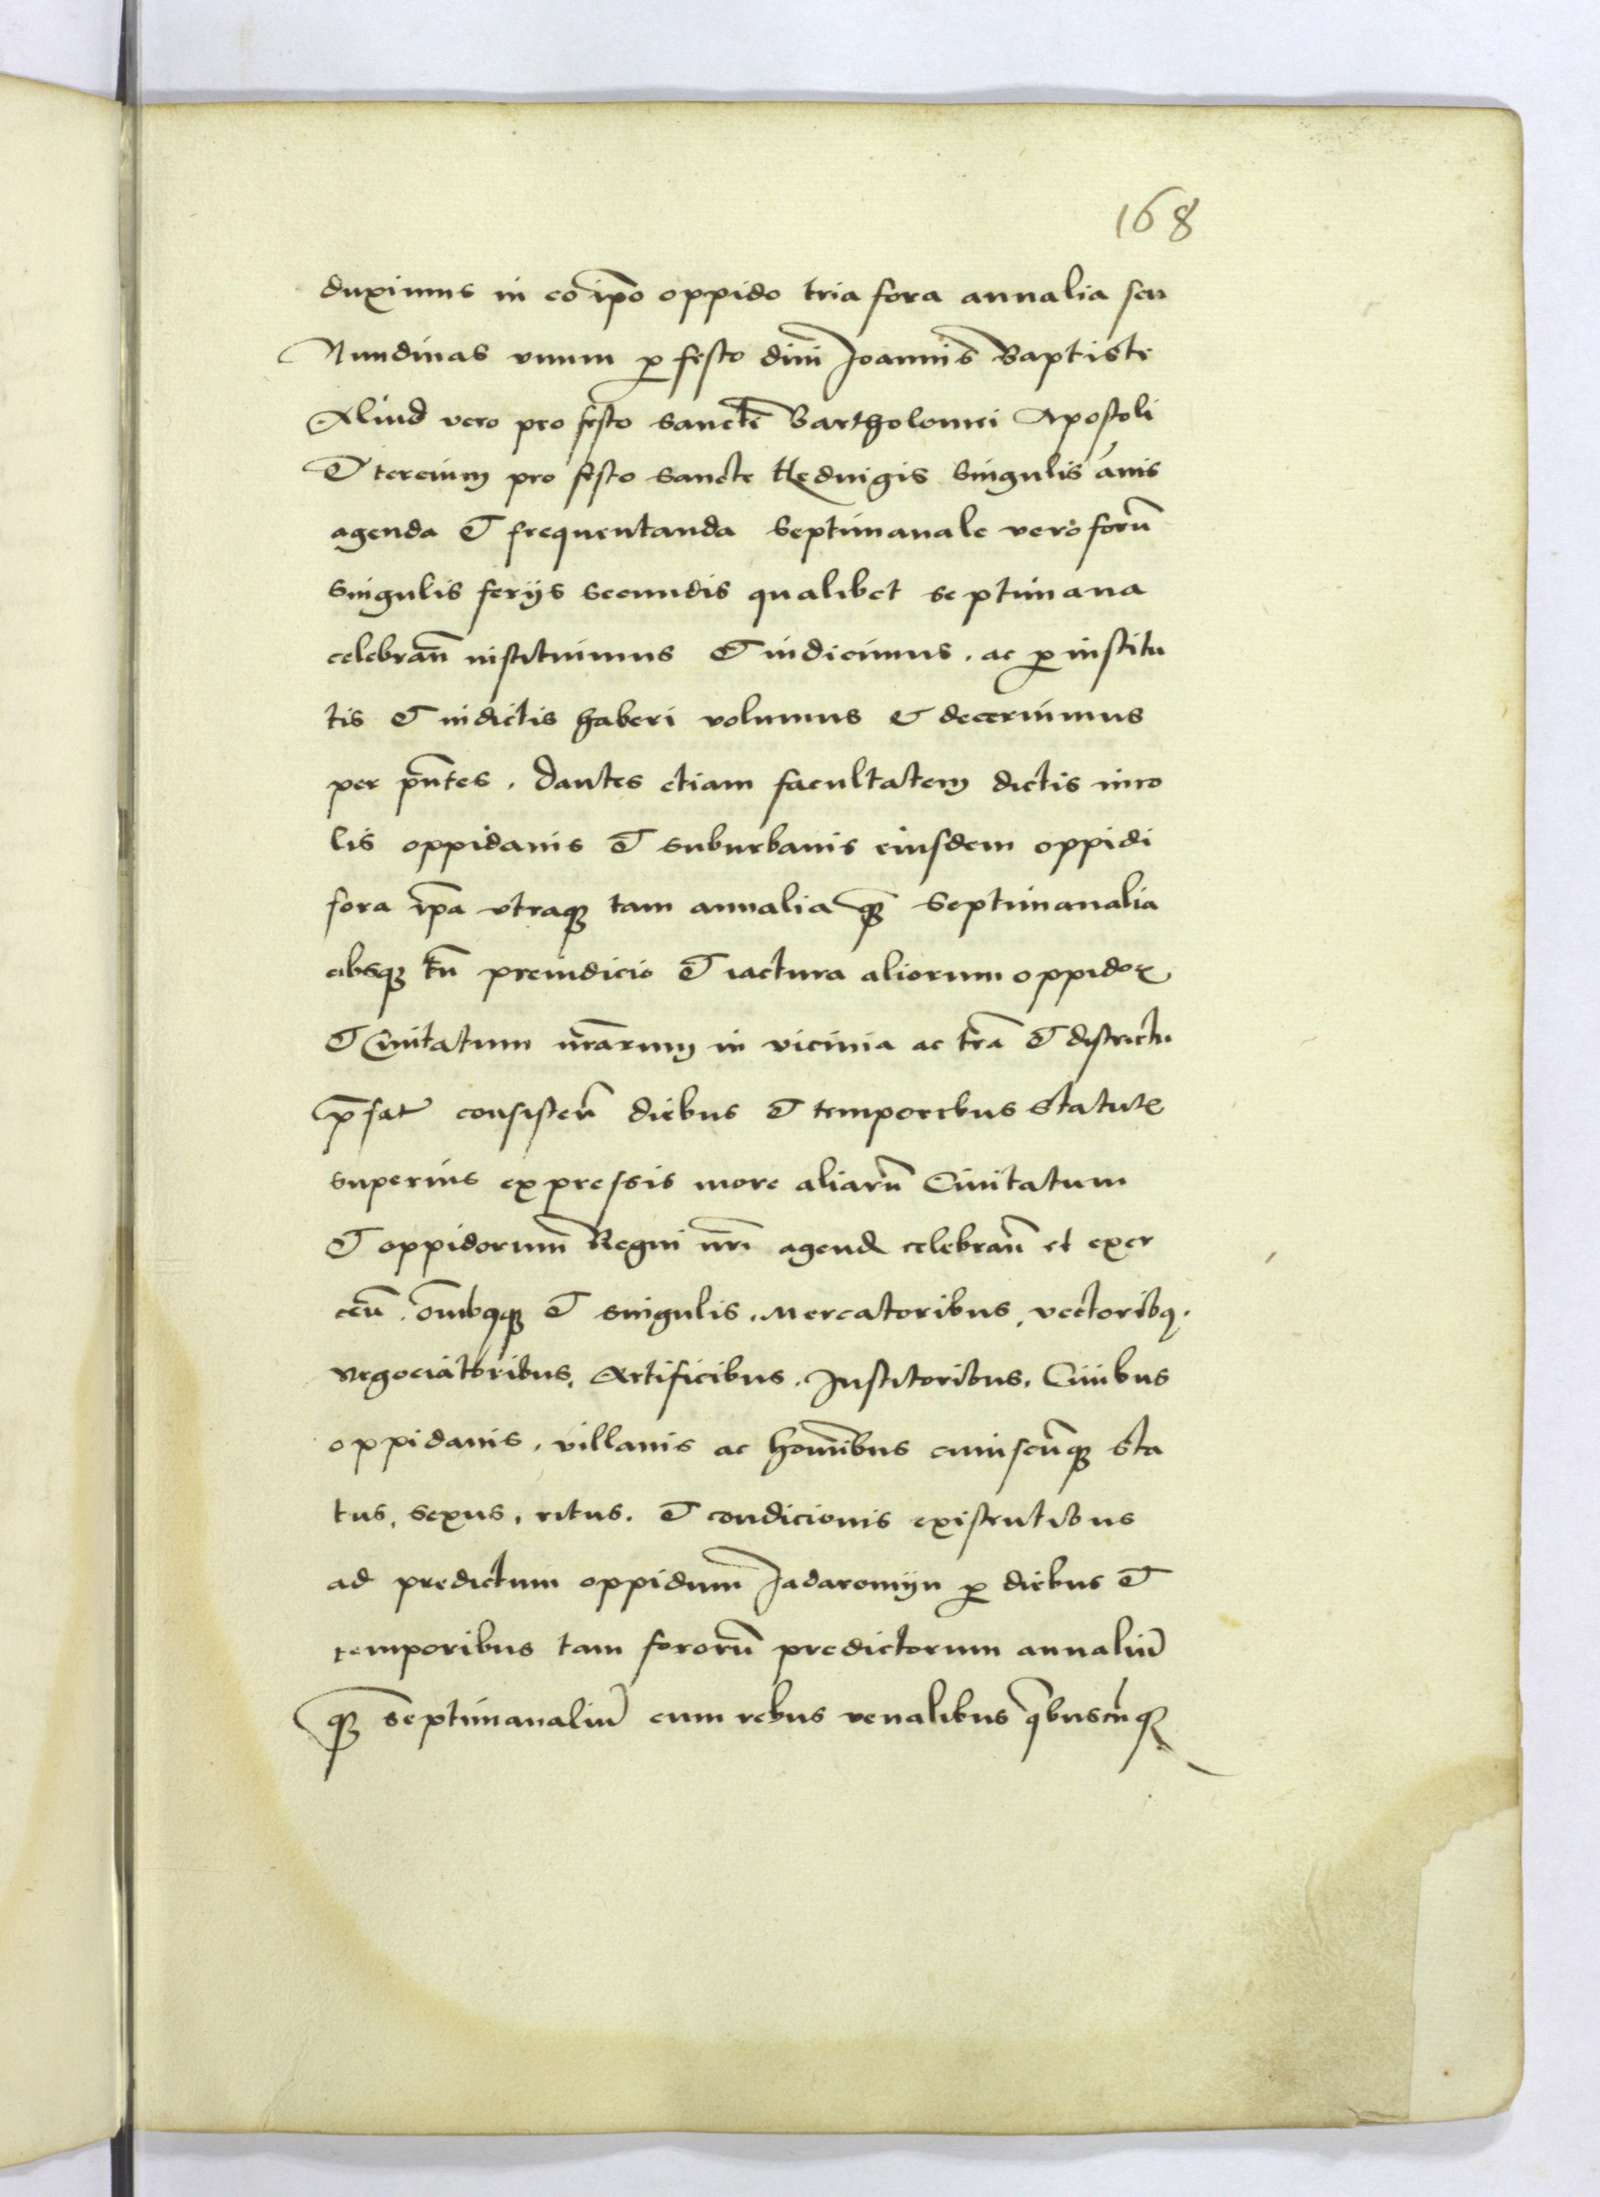 168
duximus in eo ip̄o oppido tria fora annalia seu
Nundinas vnum ꝓ festo diui Joannis Baptiste
Aliud vero pro festo sancti Bartholomei Apostoli
Et tercium pro festo sancte Heduigis singulis ānis
agenda et frequentanda Septimanale vero forū
singulis ferijs secundis qualibet septimana
celebran̄ instituimus et indicimus. ac ꝓ institu
tis et indictis haberi volumus et decernimus
per p̄ntes. Dantes etiam facultatem dictis inco
lis oppidanis et suburbanis eiusdem oppidi
fora ip̄a vtraqꝫ tam annalia qꝫ̄ Septimanalia
absqꝫ tn̄ preiudicio et iactura aliorum oppidoꝝ
et Ciuitatum nr̄arum in vicinia ac tr̄a et districtu
p̄fat consisten̄ diebus et temporibus statutꝭ
superius expressis more aliarū Ciuitatum
et oppidorum Regni nr̄i agend celebran̄ et exer
cen̄. om̄ibꝫqꝫ et singulis. Mercatoribus, vectoribꝫ.
Negociatoribus, Artificibus. Institoribus. Ciuibus
oppidanis. villanis ac hom̄ibus cuiuscūqꝫ sta
tus, sexus, ritus. et condicionis existentibus
ad predictum oppidum Jadaromijn ꝓ diebus et
temporibus tam fororū predictorum annaliū
qꝫ̄ septimanaliū cum rebus venalibus qͥbuscūqꝫ